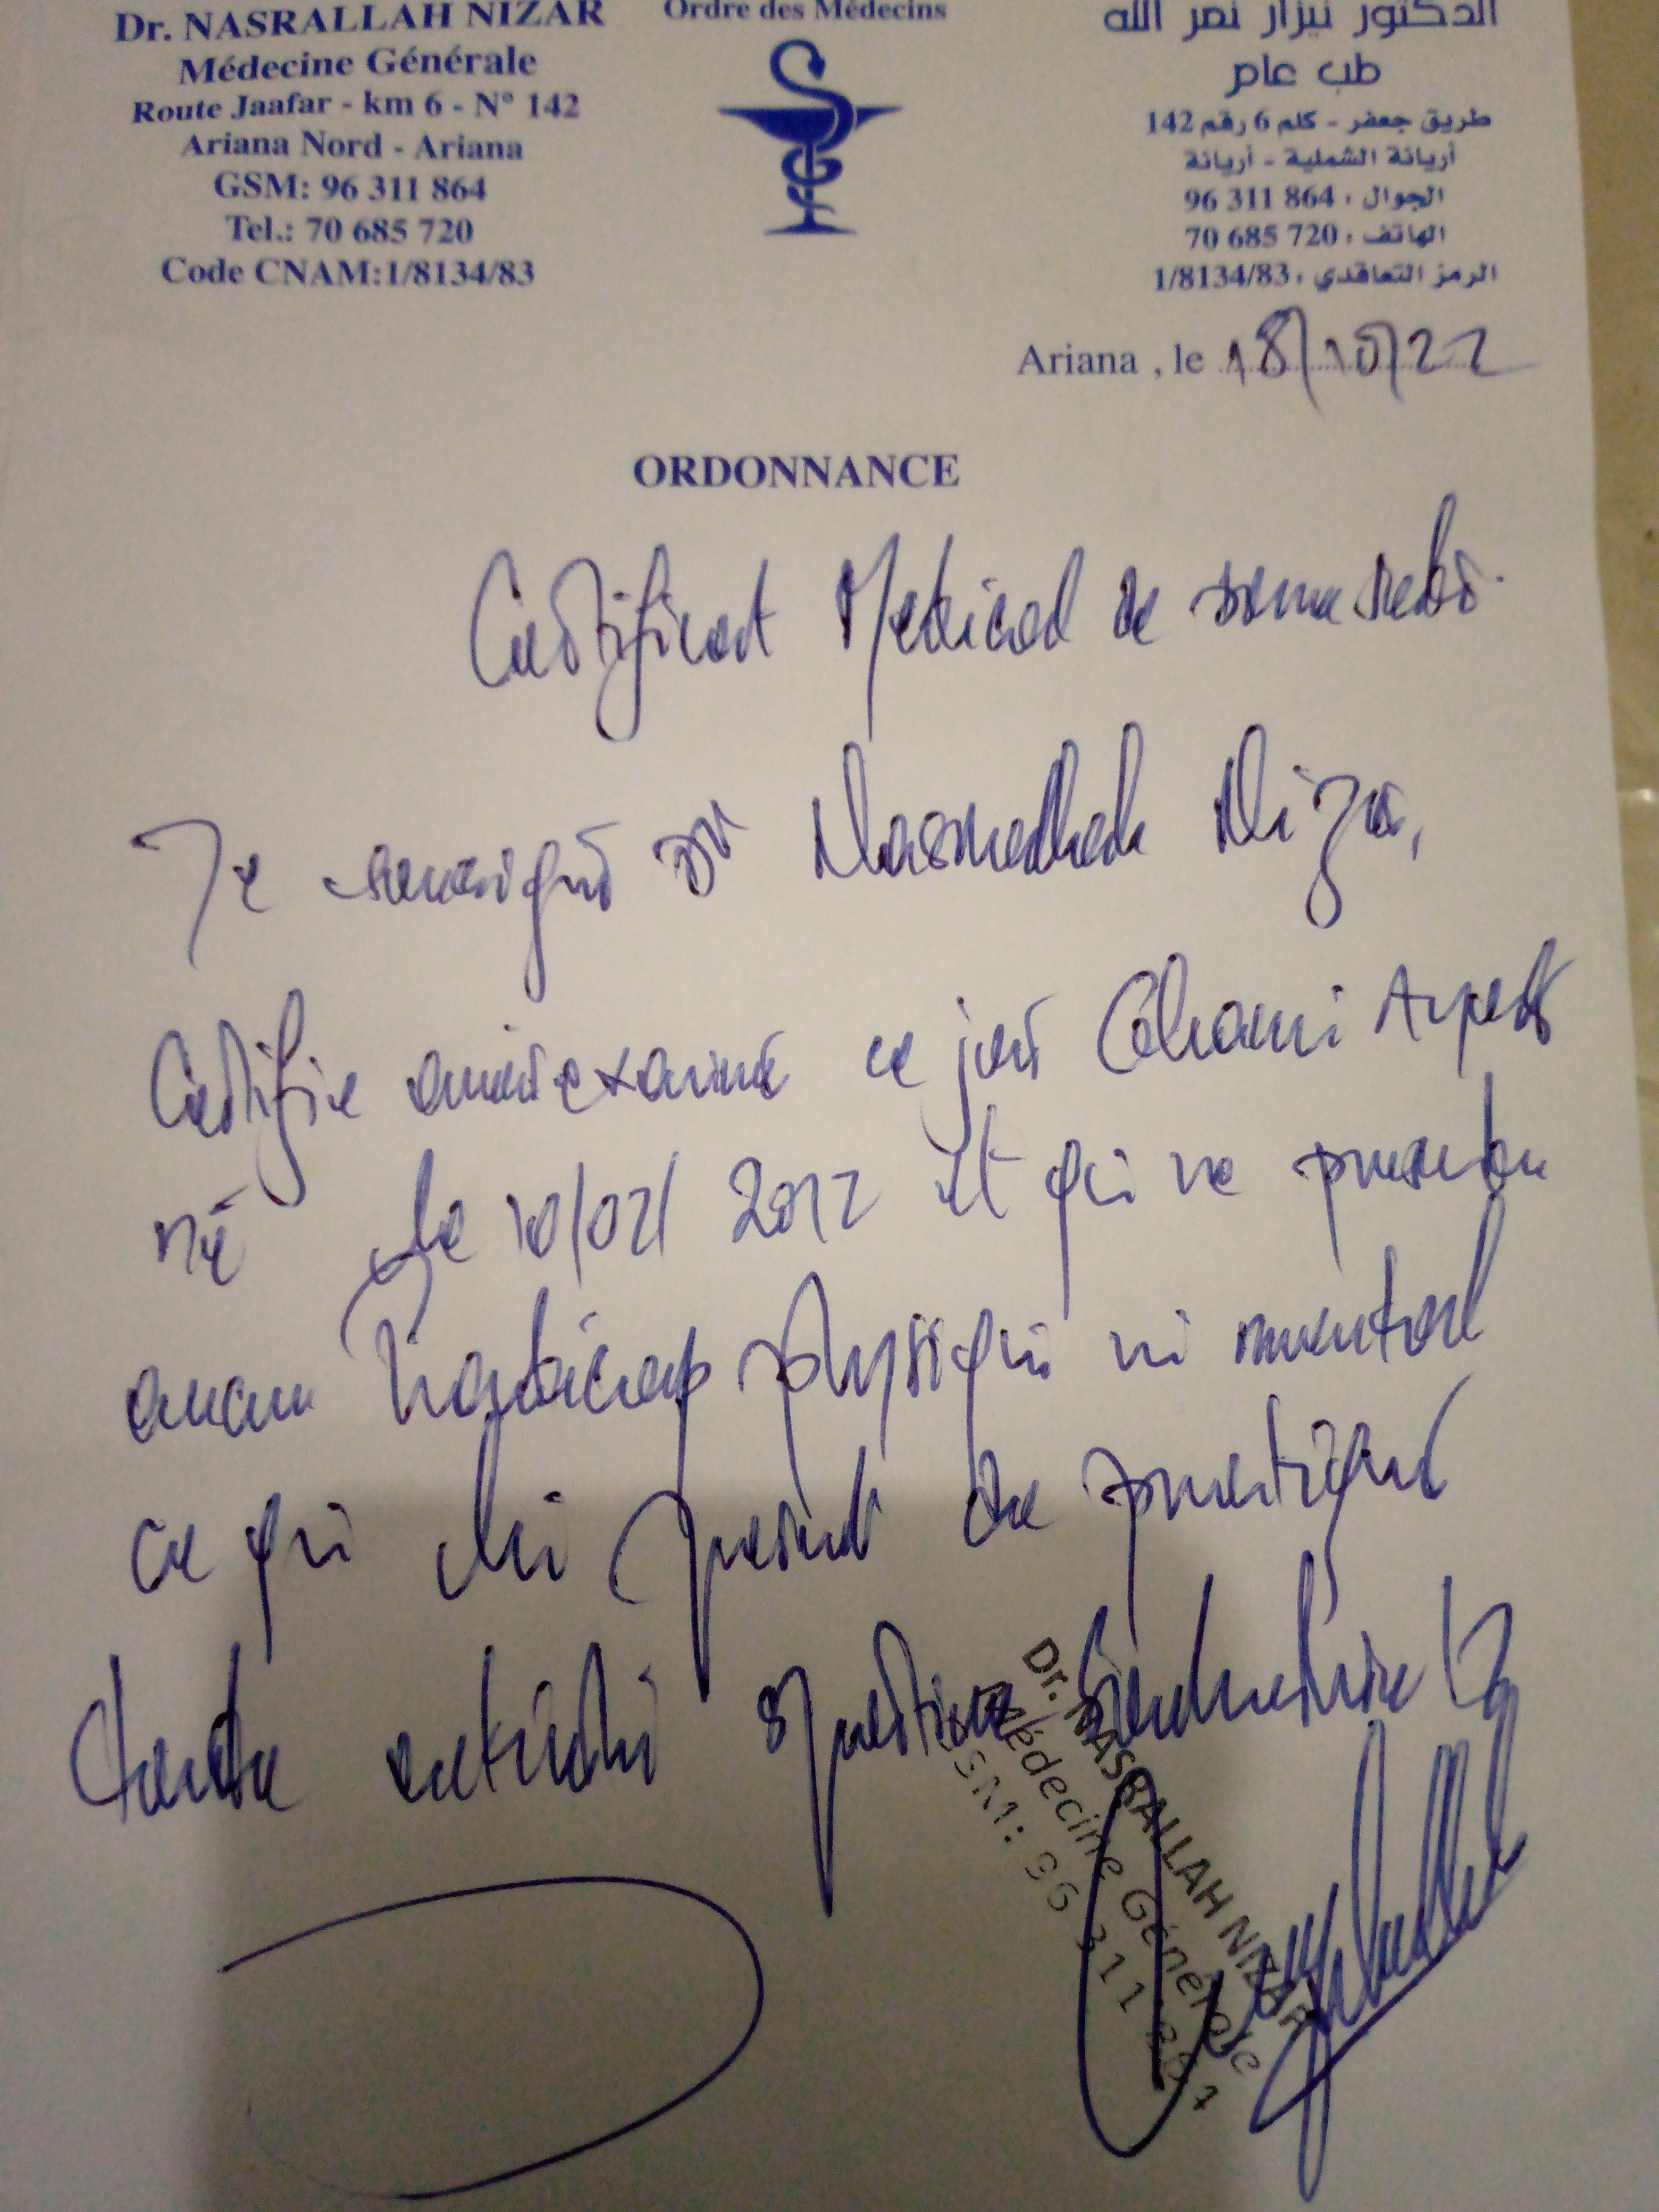 Dr. NASRALLAH NIZAR
Médecine Générale
Route Jaafar - km 6 - N° 142
Ariana Nord - Ariana
GSM: 96 311 864
Tel.: 70 685 720
Code CNAM:1/8134/83
Ordre des Médecins
الدكتور نيزار نصر الله
طب عام
طريق جعفر - كلم 6 رقم 142
أريانة الشملية - أريانة
الجوال : 96 311 864
الهاتف : 70 685 720
الرمز التعاقدي : 1/8134/83
Ariana , le 18/10/22
ORDONNANCE
Certificat Medical de
Je soussigné Dr Nasrallah Nizar,
Certifie avoir examiné ce jour
né le 10/02/2012 et qui ne presente
aucun handicap physique ni mental
ce qui lui permet de pratiquer
toute activité sportive
Dr. NASRALLAH NIZAR
Médecine Générale
GSM: 96 311 864